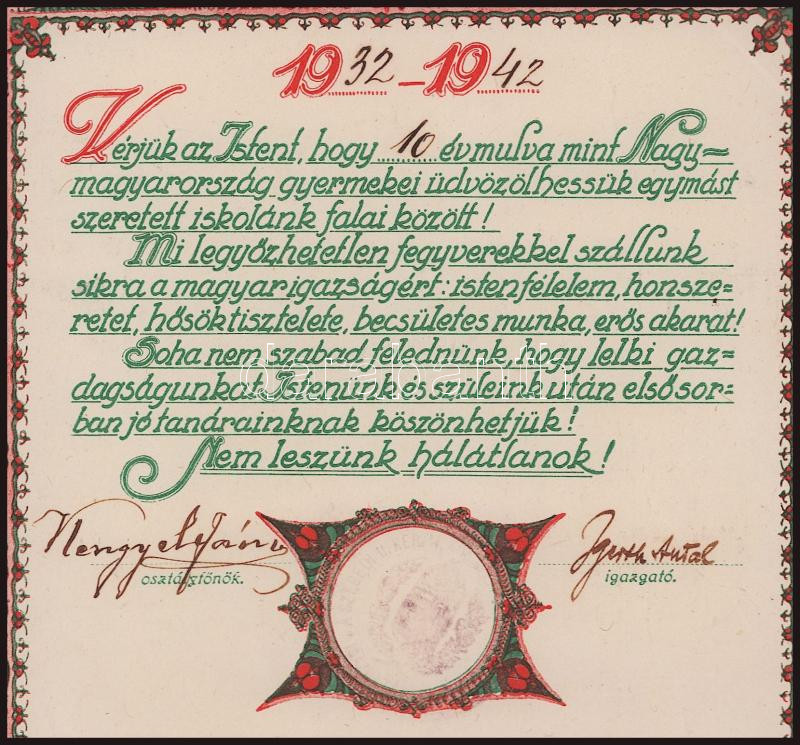 1932-1942
Kérjük az Istent, hogy 10 év mulva mint Nagy=
magyarország gyermekei üdvözölhessük egymást
szeretett iskolánk falai között!
Mi legyőzhetetlen fegyverekkel szállunk
síkra a magyar igazságért: istenfélelem, honsze=
retet, hősök tisztelete, becsületes munka, erős akarat!
Soha nem szabad felednünk, hogy lelki gaz=
dagságunkat Istenünk és szüleink után elsősor=
ban jó tanárainknak köszönhetjük!
Nem leszünk hálátlanok!
osztályfőnök.
Antal
igazgató.
darabanth